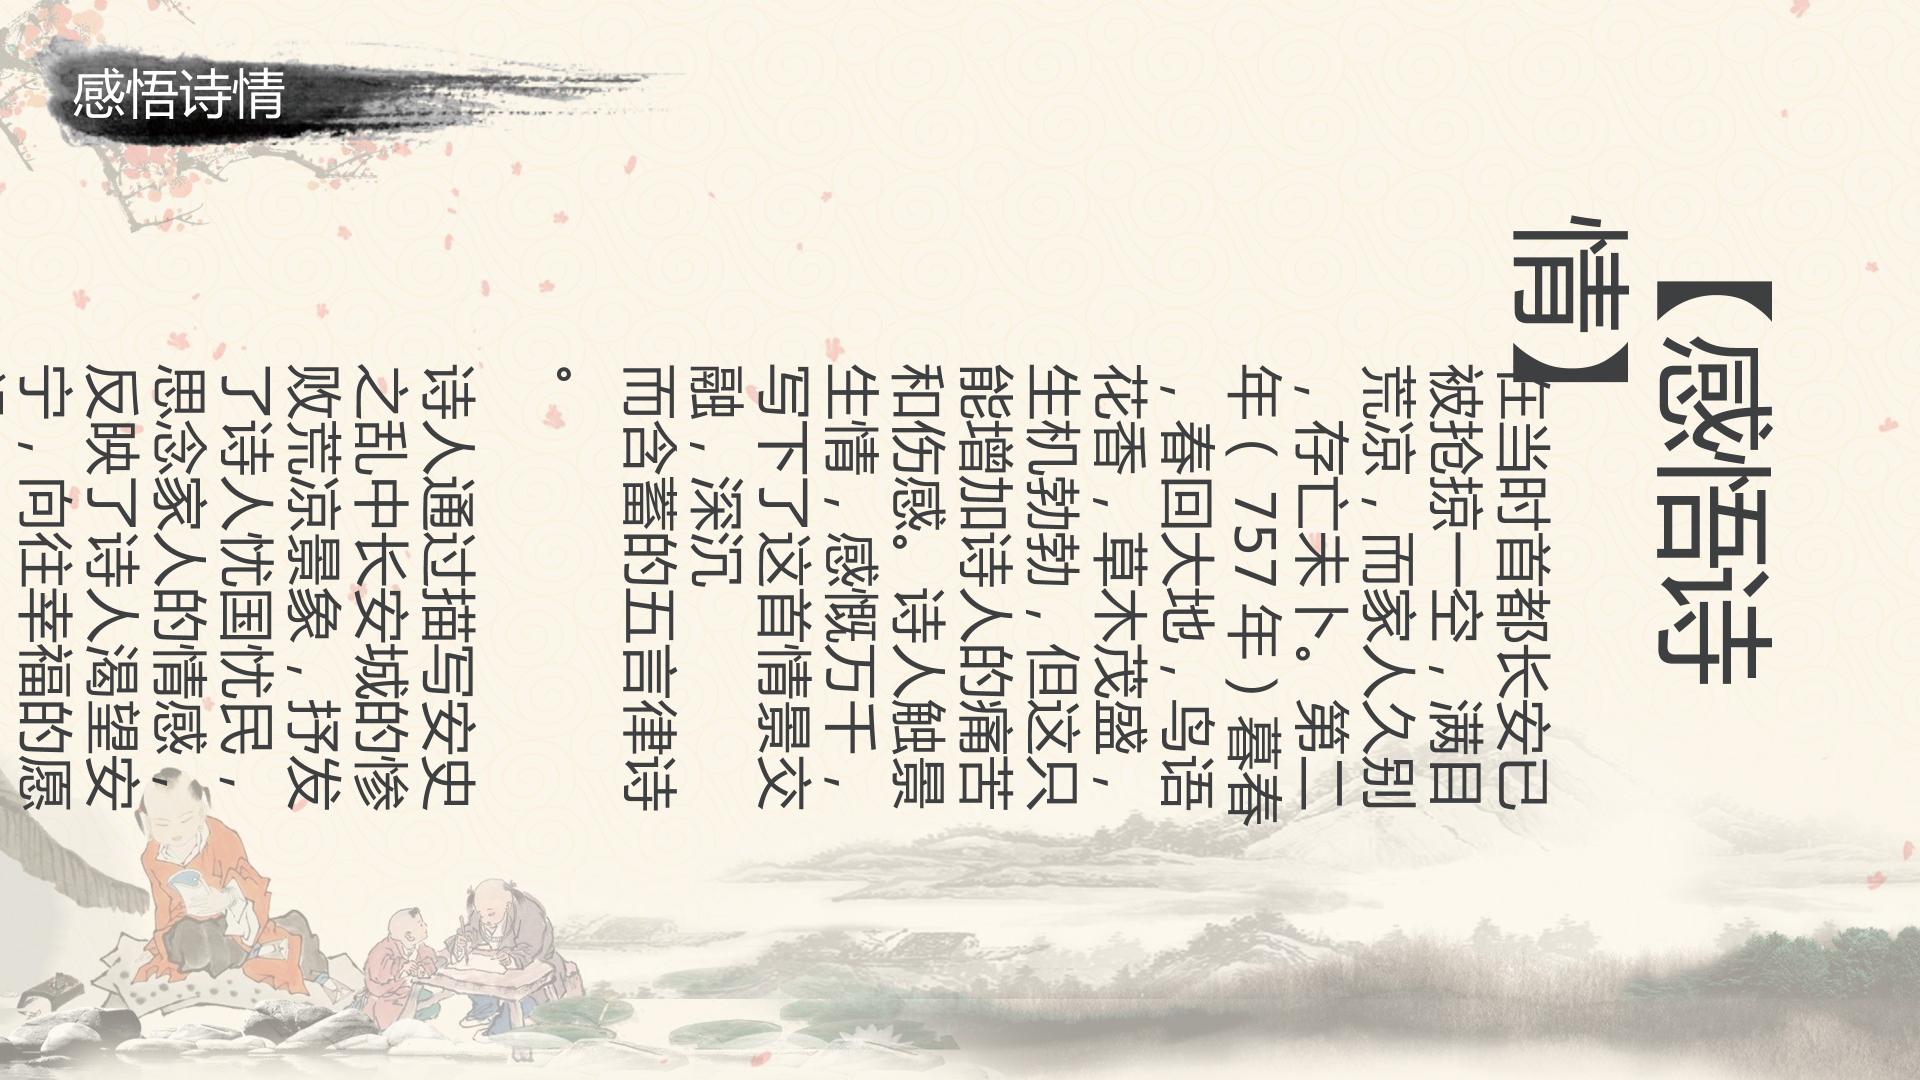 感悟诗情
【感悟诗
情】
在当时首都长安已
被抢掠一空，满目
荒凉，而家人久别
，存亡未卜。第二
年（757年）暮春
，春回大地，鸟语
花香，草木茂盛，
生机勃勃，但这只
能增加诗人的痛苦
和伤感。诗人触景
生情，感慨万千，
写下了这首情景交
融，深沉
而含蓄的五言律诗
。
诗人通过描写安史
之乱中长安城的惨
败荒凉景象，抒发
了诗人忧国忧民，
思念家人的情感，
反映了诗人渴望安
宁，向往幸福的愿